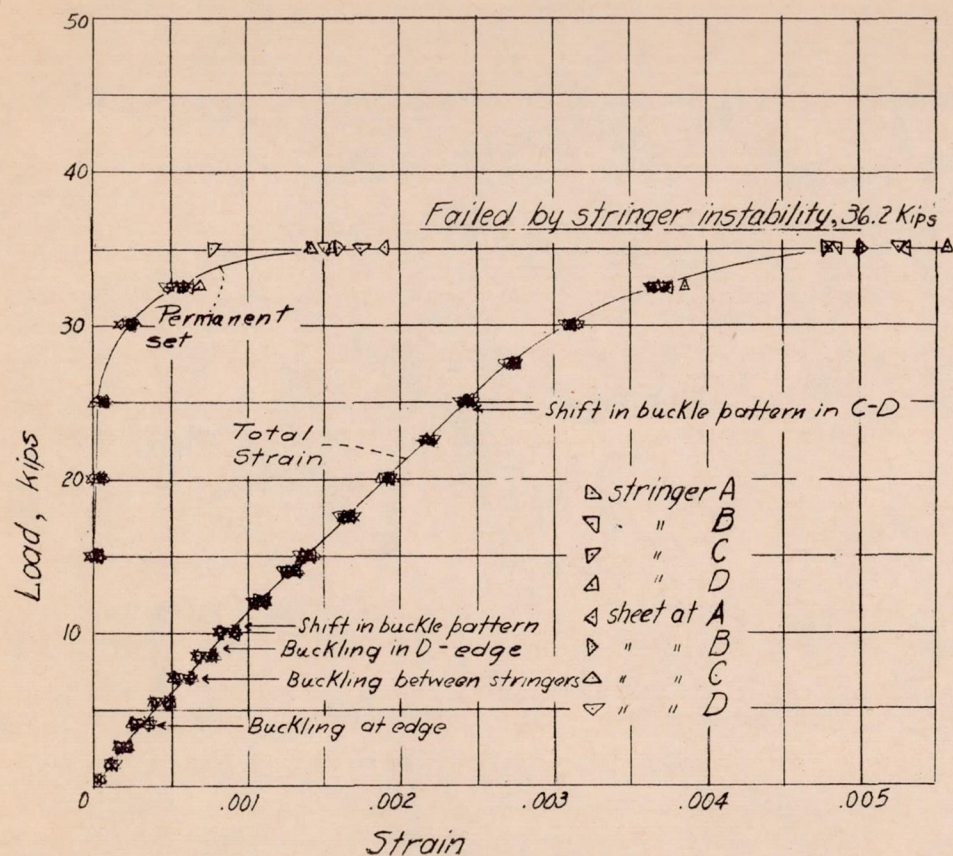 50
40
30
20
10
Load, kips
Failed by stringer instability, 36.2 Kips
Permanent
set
Shift in buckle pattern in C-D
Total
Strain
stringer A
" B
" C
" D
sheet at A
" " B
" " C
" " D
Shift in buckle pattern
Buckling in D-edge
Buckling between stringers
Buckling at edge
0 .001 .002 .003 .004 .005
Strain